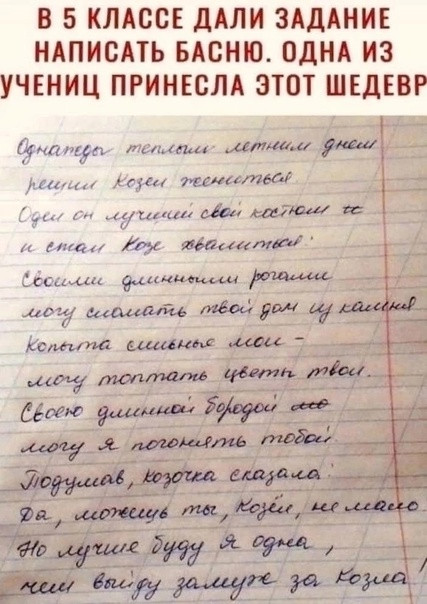 В 5 КЛАССЕ ДАЛИ ЗАДАНИЕ
НАПИСАТЬ БАСНЮ. ОДНА ИЗ
УЧЕНИЦ ПРИНЕСЛА ЭТОТ ШЕДЕВР
Однажды теплым летним днем
решил Козел жениться
Одел он лучший свой костюм
и стал Козе хвалиться:
Своими длинными рогами
могу сломать твой дом из камня
Копыта сильные мои –
могу топтать цветы твои.
Своею длинной бородой
могу я погонять тобой.
Подумав, Козочка сказала:
Да, можешь ты, Козёл, не мало
Но лучше буду я одна,
чем выйду замуж за Козла!